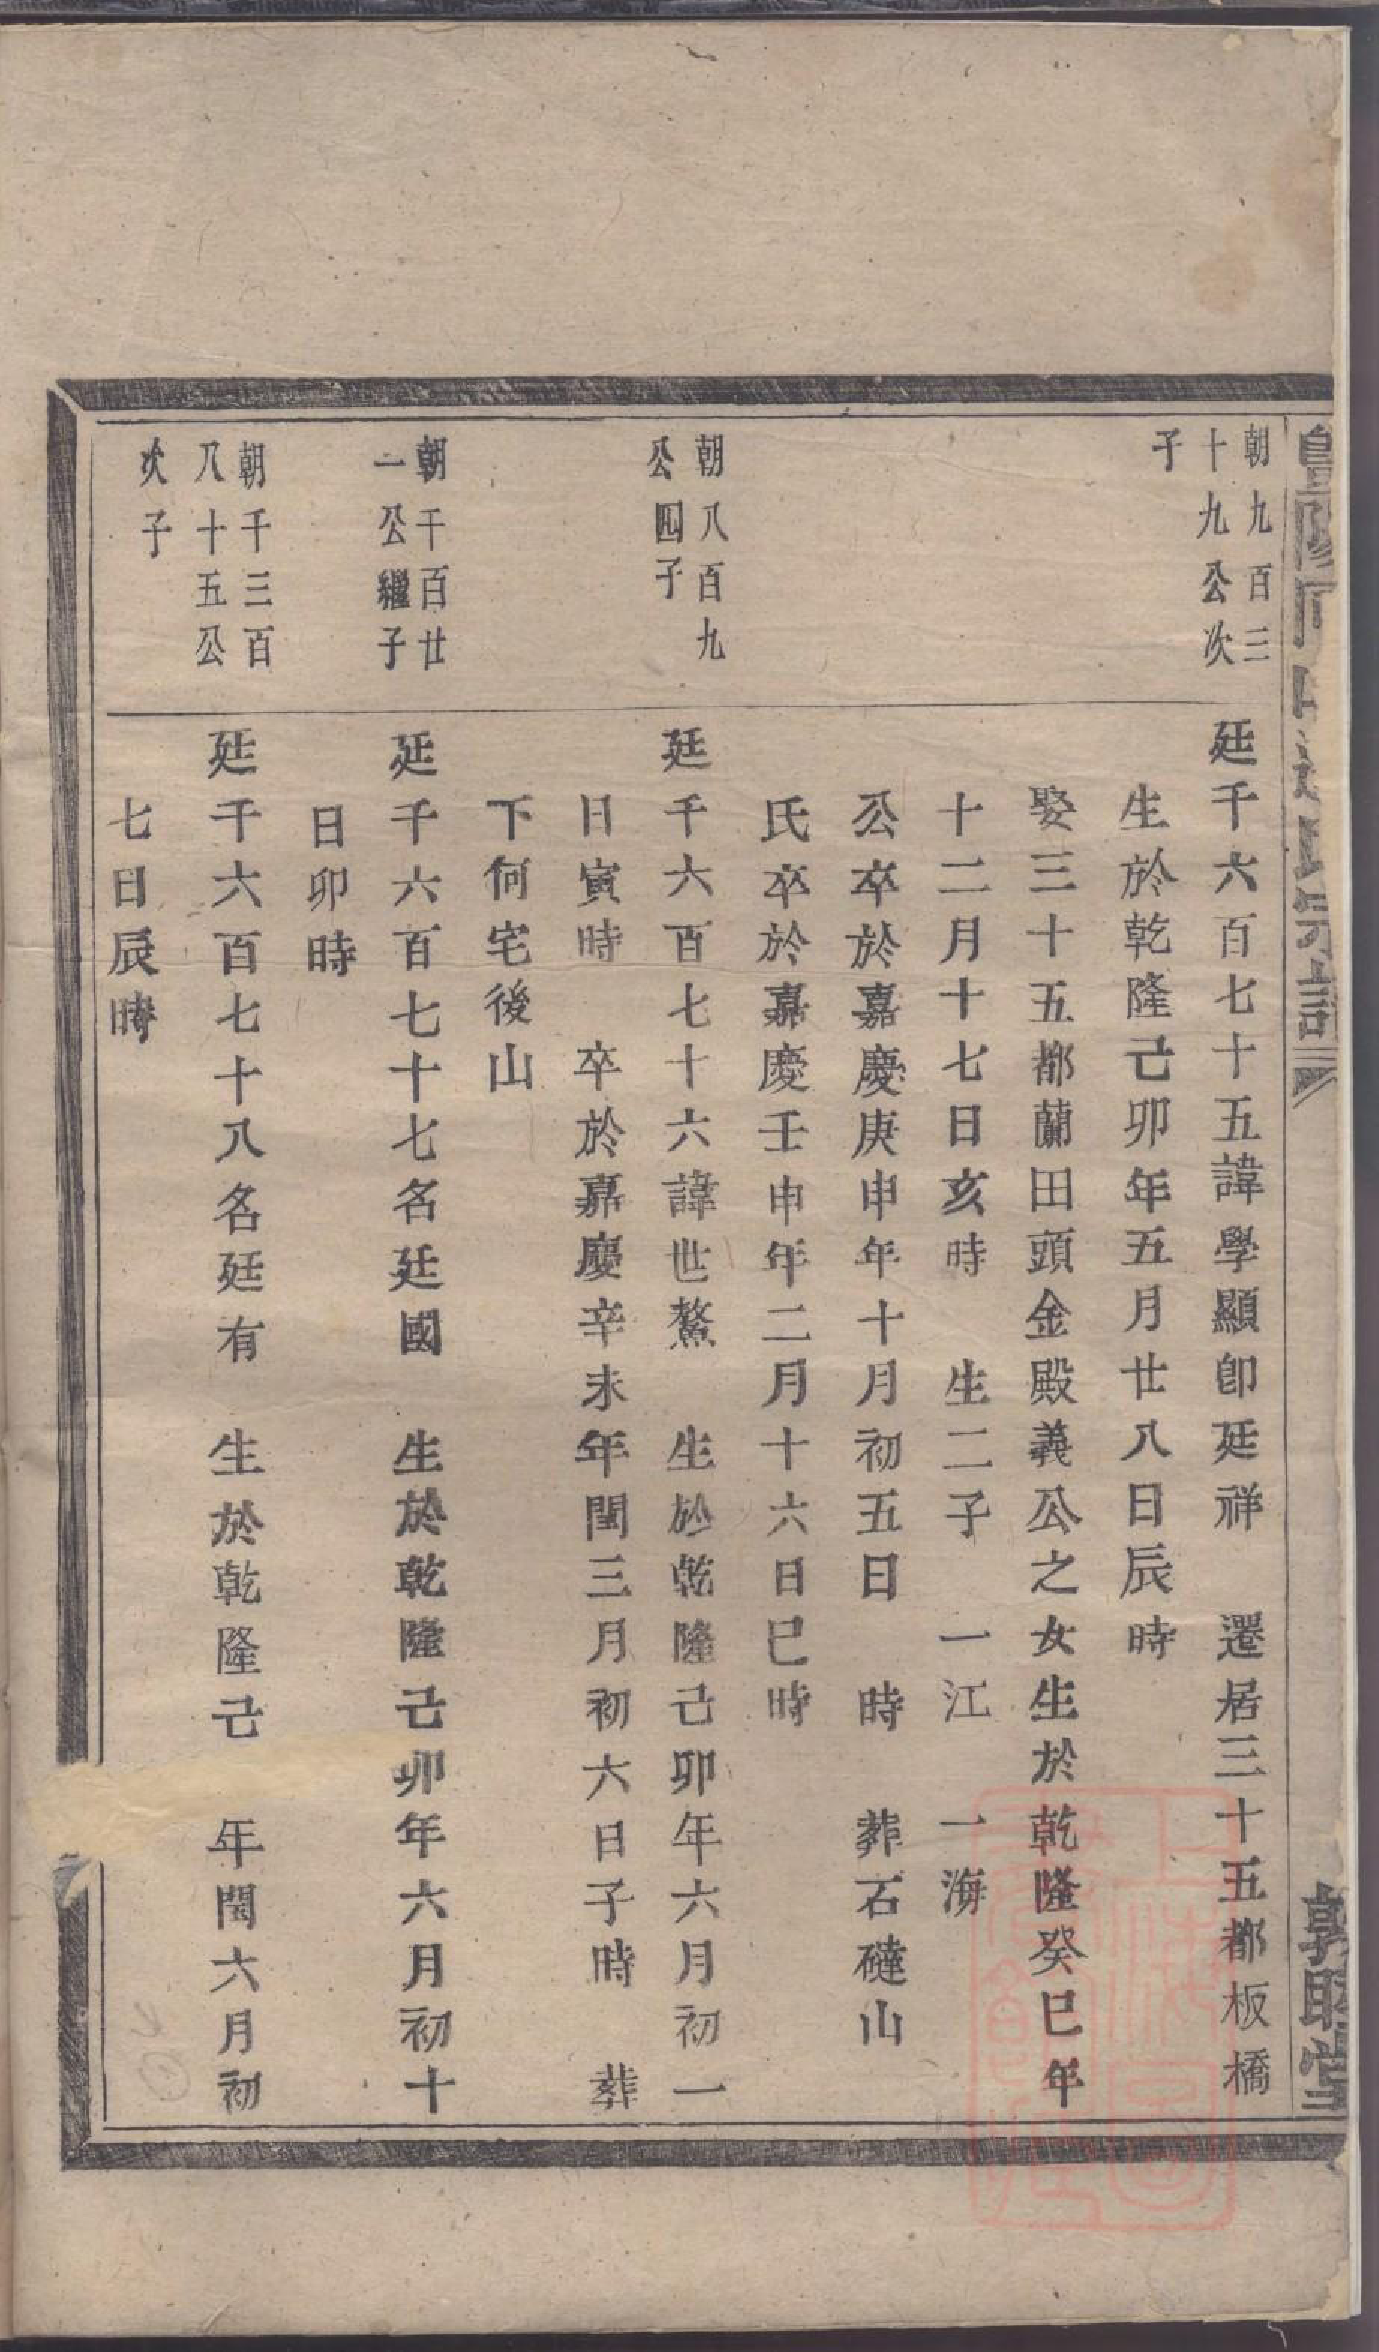 宗譜
敦睦堂
朝九百三
十九公次
子
廷千六百七十五諱學顯卽廷祥　遷居三十五都板橋
生於乾隆己卯年五月廿八日辰時
娶三十五都蘭田頭金殿義公之女生於乾隆癸巳年
十二月十七日亥時　生二子　一江　一海
公卒於嘉慶庚申年十月初五日　時　葬石磋山
氏卒於嘉慶壬申年二月十六日巳時
朝八百九
公四子
廷千六百七十六諱世鰲　生於乾隆己卯年六月初一
日寅時　卒於嘉慶辛未年閏三月初六日子時　葬
下何宅後山
朝千百廿
一公繼子
廷千六百七十七名廷國　生於乾隆己卯年六月初十
日卯時
朝千三百
八十五公
次子
廷千六百七十八名廷有　生於乾隆己　年閏六月初
七日辰時